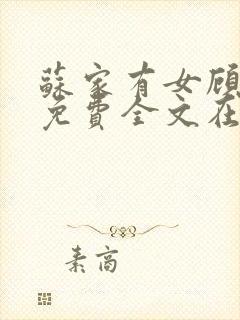 蘇家有女顾
免費全文在
素高